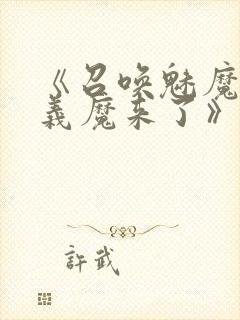 《召唤魅魔
義魔来了》
許武